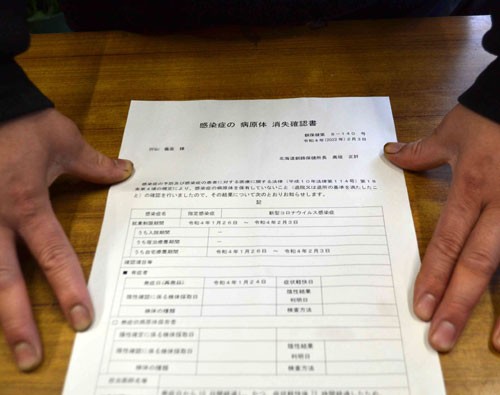 感染症の 病原体 消失確認書
釧保健第 8－140 号
令和４年(2022)年２月３日
様
北海道釧路保健所長
感染症の予防及び感染症の患者に対する医療に関する法律（平成１０年法律第１１４号）第１８
感染症の病原体を保有していないこと（退院又は退所の基準を満たしたこ
と）の確認を行いましたので、その結果について次のとおりお知らせします。
記
感染症名 指定感染症 新型コロナウイルス感染症
就業制限期間 令和４年１月２６日 ～ 令和４年２月３日
うち入院期間 －
うち宿泊療養期間 －
うち自宅療養期間 令和４年１月２６日 ～ 令和４年２月３日
確認項目等
■ 有症者
発症日 令和４年１月２４日 症状軽快日
陰性確認に係る検体採取日 陰性結果判明日
検体の種類 検査方法
□ 無症状病原体保有者
陰性確認に係る検体採取日 陰性結果判明日
検体の種類 検査方法
担当医師名等